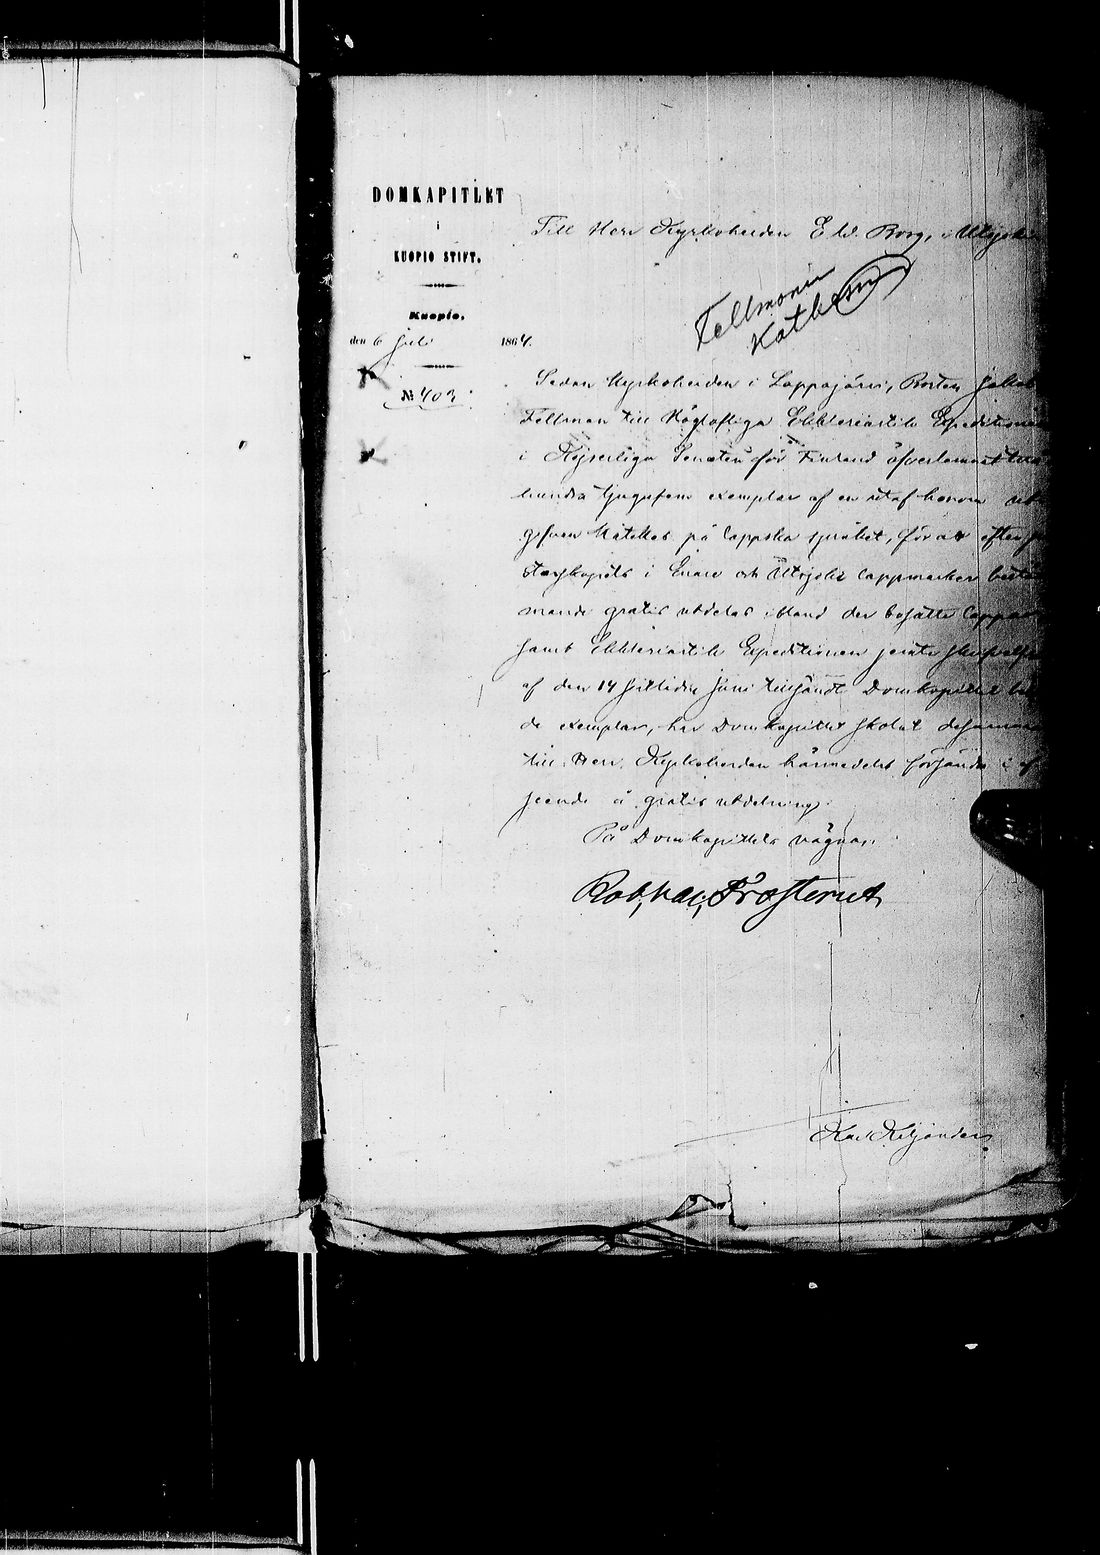 DOMKAPITLET
i
KUOPIO STIFT.
Kuopio,
den 6 Juli 1864.
№ 403.
Till Herr Kyrkoherden E. W. Borg, i Utsjoki
Fellmanin
Sedan Kyrkoherden i Lappajärvi, Prosten Jakob
Fellman till Höglofliga Ecklesiastik Expeditionen
i Kejserliga Senaten för Finland öfverlemnat
hundra tjugufem exemplar af en utaf honom ut-
gifven Kateches på Lappska språket, för att efter
i Enare och Utsjoki Lappmarker
gratis utdelas ibland der bosatte Lappar
samt Ecklesiastik Expeditionen jemte skrifvelse
af den 14 sistlidne Juni tillsändt Domkapitlet
de exemplar, har Domkapitlet skolat desamma
till Herr Kyrkoherden härmedelst försända i af-
seende å gratis utdelning.
På Domkapitlets vägnar:
Rob. Val. Frosterus